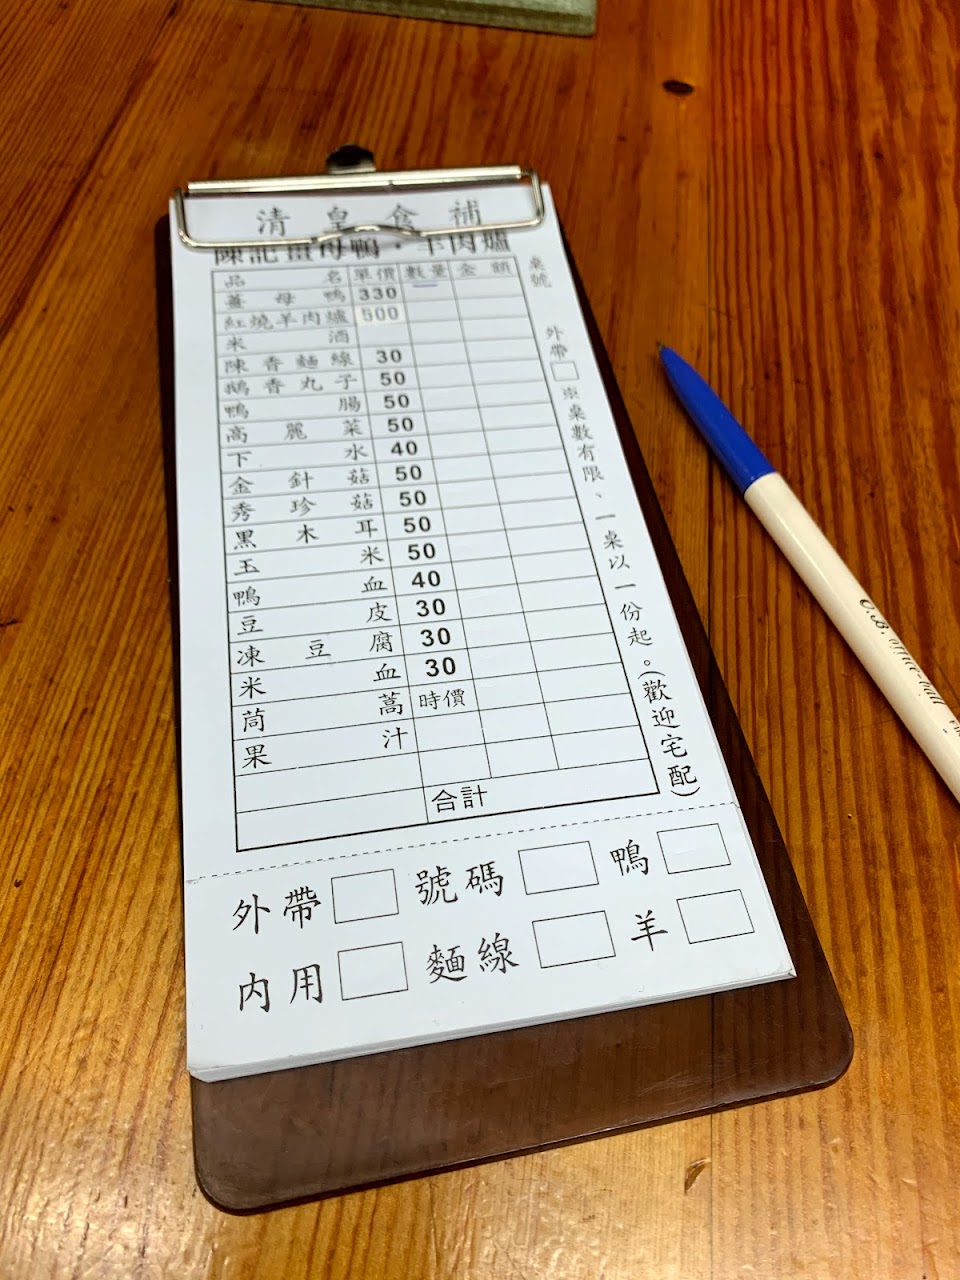 清皇食補
陳記薑母鴨・羊肉爐
品名 單價 數量 金額
薑母鴨 330
紅燒羊肉爐 500
米酒
陳香麵線 30
鵝香丸子 50
鴨腸 50
高麗菜 50
下水 40
金針菇 50
秀珍菇 50
黑木耳 50
玉米 50
鴨血 40
豆皮 30
凍豆腐 30
米血 30
茼蒿 時價
果汁
合計
桌號
外帶
※桌數有限、一桌以一份起。(歡迎宅配)
外帶 號碼 鴨
內用 麵線 羊
O.B.